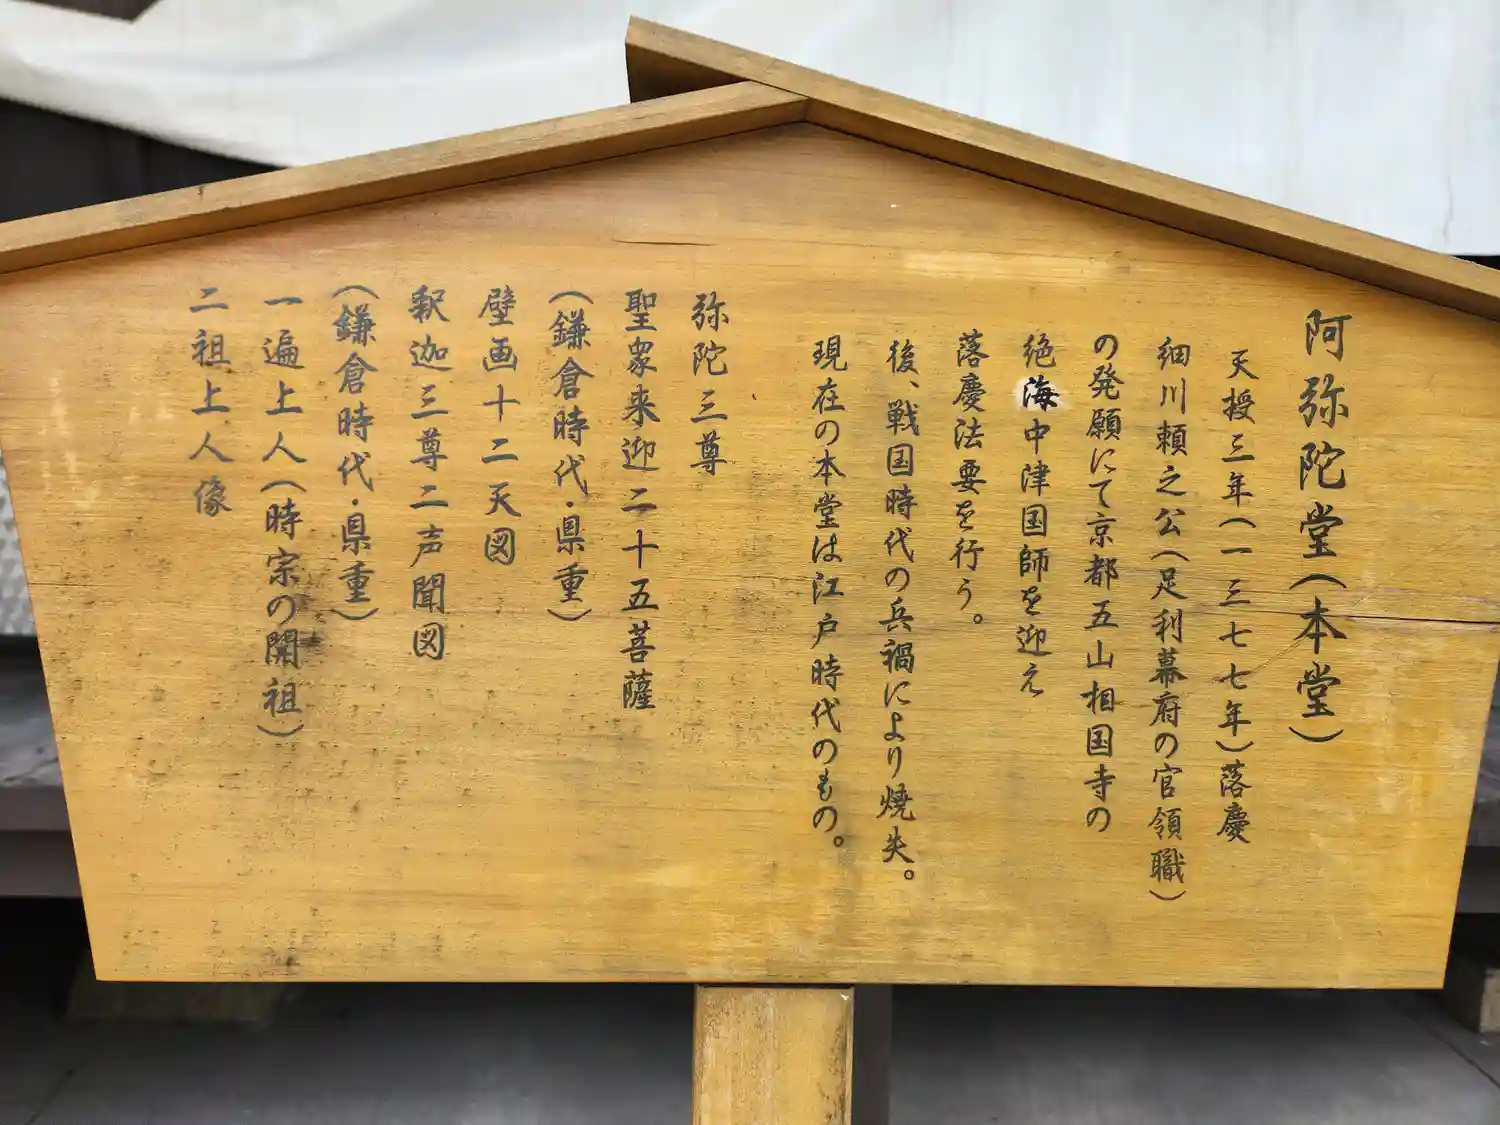 阿弥陀堂(本堂)
天授三年(一三七七年)落慶
細川頼之公(足利幕府の官領職)
の発願にて京都五山相国寺の
絶海中津国師を迎え
落慶法要を行う。
後、戦国時代の兵禍により焼失。
現在の本堂は江戸時代のもの。
弥陀三尊
聖衆来迎二十五菩薩
(鎌倉時代・県重)
壁画十二天図
釈迦三尊二声聞図
(鎌倉時代・県重)
一遍上人(時宗の開祖)
二祖上人像